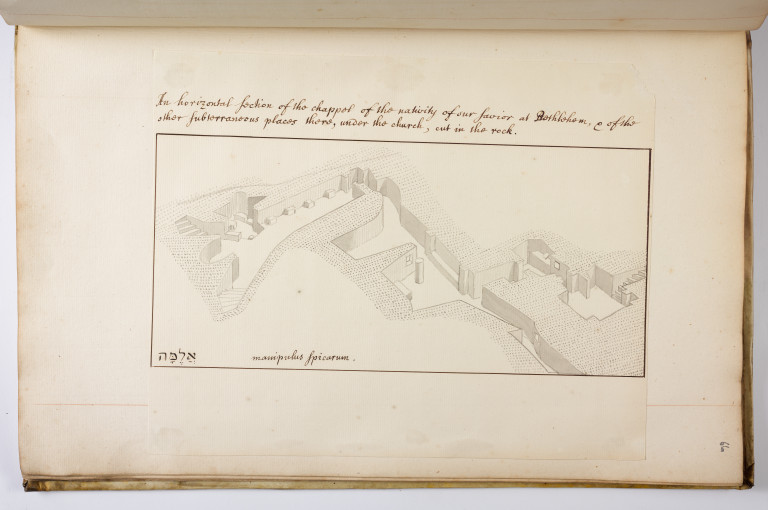 An horizontal section of the chappel of the nativity of our savior at Bethlehem, & of the
other subterraneous places there, under the church, cut in the rock.
אֲלֻמָּה manipulus spicarum.